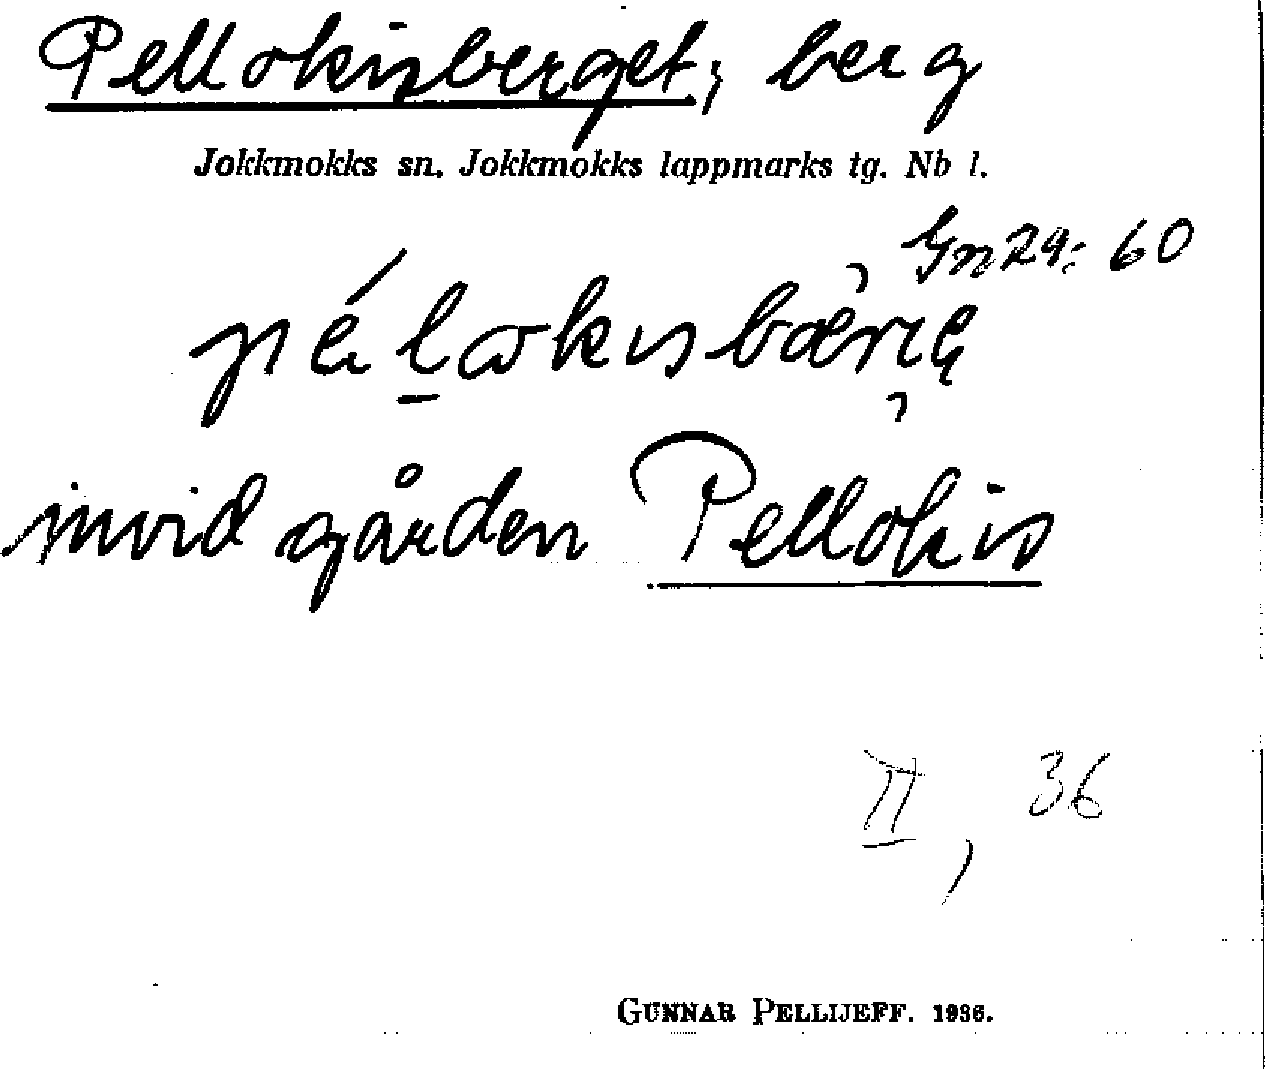 Pellokisberget, berg
Jokkmokks sn. Jokkmokks lappmarks tg. Nb l.
Gn 29: 60
invid gården Pellokis
II, 36
GUNNAR PELLIJEFF. 1936.